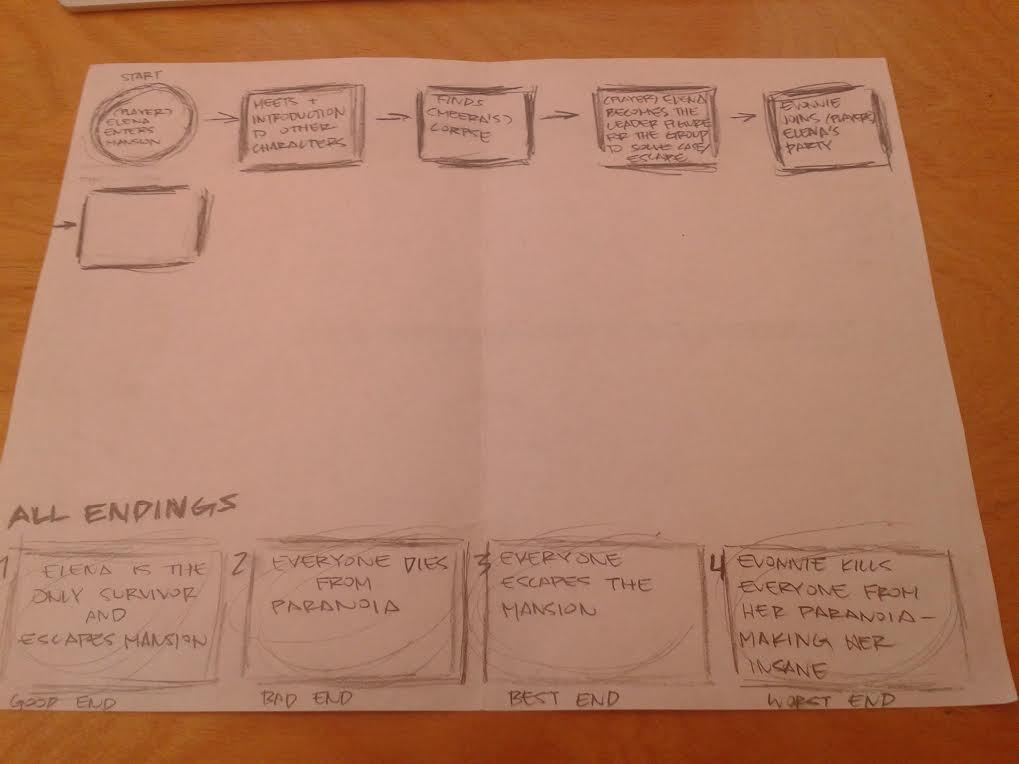 START
(PLAYER)
ELENA
ENTERS
MANSION
MEETS +
INTRODUCTION
TO OTHER
CHARACTERS
FINDS
(MEERA'S)
CORPSE
(PLAYER) ELENA
BECOMES THE
LEADER FIGURE
FOR THE GROUP
TO SOLVE CASE/
ESCAPE
EVONNIE
JOINS (PLAYERS)
ELENA'S
PARTY
ALL ENDINGS
1
ELENA IS THE
ONLY SURVIVOR
AND
ESCAPES MANSION
GOOD END
2
EVERYONE DIES
FROM
PARANOIA
BAD END
3
EVERYONE
ESCAPES THE
MANSION
BEST END
4
EVONNIE KILLS
EVERYONE FROM
HER PARANOIA-
MAKING HER
INSANE
WORST END